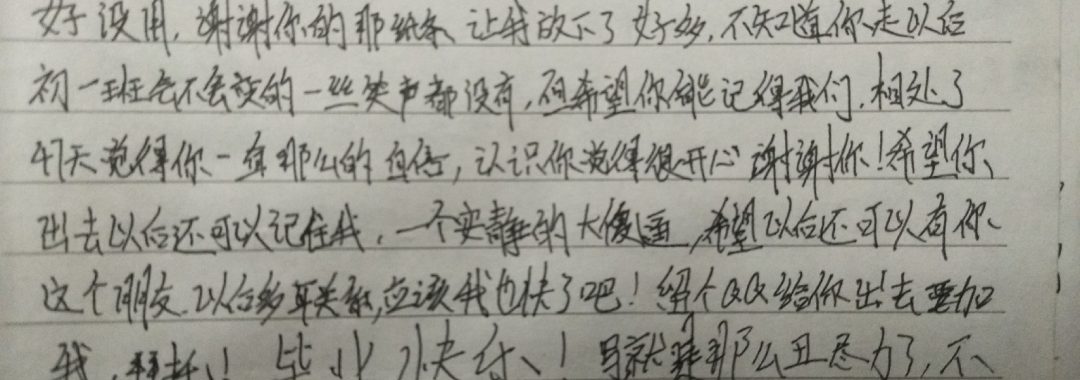 好没用,谢谢你的那纸条,让我放下了好多,不知道你走以后
初一班会不会变的一丝笑声都没有,但希望你能记得我们,相处了
47天觉得你一直那么的自信,认识你觉得很开心 谢谢你!希望你
出去以后还可以记住我,一个安静的大傻逼,希望以后还可以有你
这个朋友.以后多耳关系,应该我也快了吧!给个QQ给你出去要加
我,拜托!毕业快乐!字就是那么丑尽力了,不